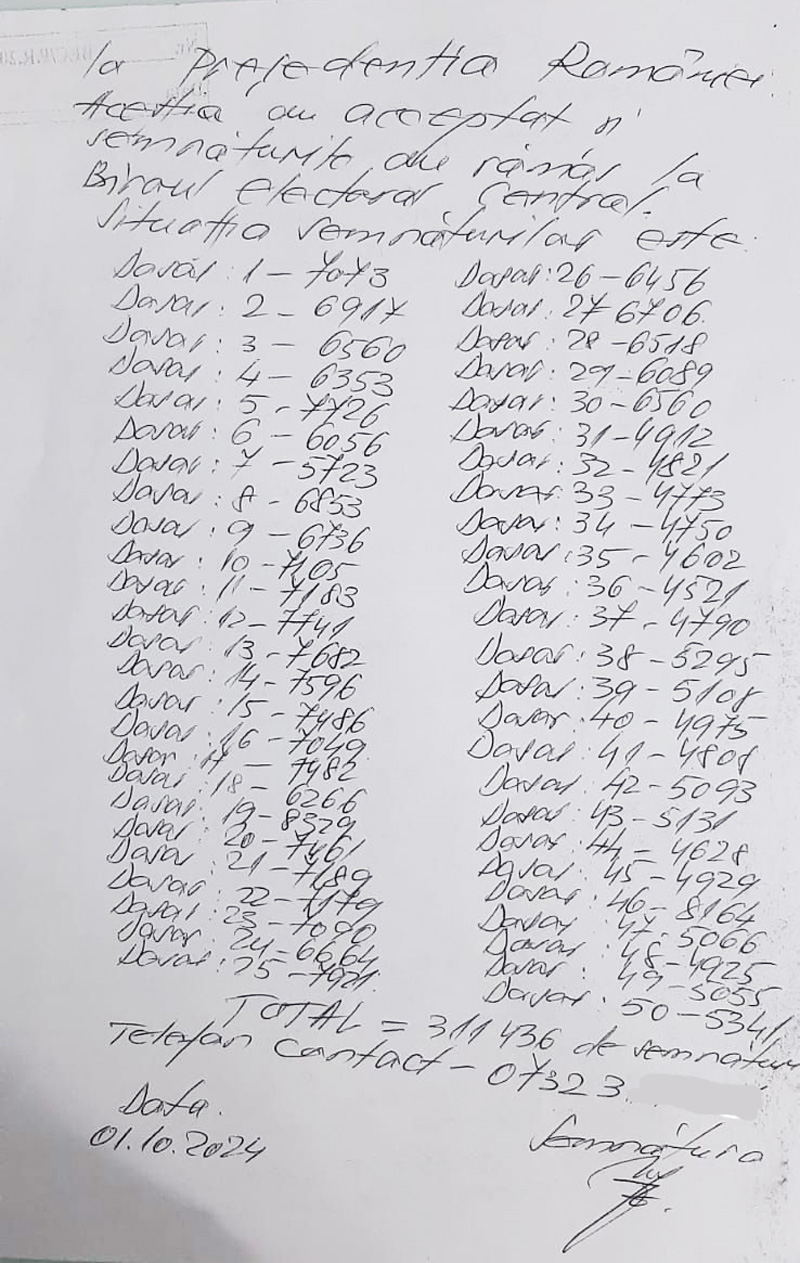 la Președenția României.
Aceștia au acceptat și
semnăturile au rămas la
Biroul electoral Central.
Situația semnăturilor este:
Dosar: 1 – 7073
Dosar: 2 – 6917
Dosar: 3 – 6560
Dosar: 4 – 6353
Dosar: 5 – 7726
Dosar: 6 – 6056
Dosar: 7 – 5723
Dosar: 8 – 6853
Dosar: 9 – 6736
Dosar: 10 – 7105
Dosar: 11 – 7183
Dosar: 12 – 7741
Dosar: 13 – 7682
Dosar: 14 – 7596
Dosar: 15 – 7486
Dosar: 16 – 7049
Dosar: 17 – 7482
Dosar: 18 – 6266
Dosar: 19 – 8329
Dosar: 20 – 7461
Dosar: 21 – 7189
Dosar: 22 – 7179
Dosar: 23 – 7000
Dosar: 24 – 6664
Dosar: 25 – 7921
Dosar: 26 – 6456
Dosar: 27 6706
Dosar: 28 – 6518
Dosar: 29 – 6089
Dosar: 30 – 6560
Dosar: 31 – 4912
Dosar: 32 – 4821
Dosar: 33 – 4773
Dosar: 34 – 4750
Dosar: 35 – 4602
Dosar: 36 – 4521
Dosar: 37 – 4790
Dosar: 38 – 5295
Dosar: 39 – 5108
Dosar: 40 – 4975
Dosar: 41 – 4808
Dosar: 42 – 5093
Dosar: 43 – 5131
Dosar: 44 – 4628
Dosar: 45 – 4929
Dosar: 46 – 8164
Dosar: 47 – 5066
Dosar: 48 – 4925
Dosar: 49 – 5055
Dosar: 50 – 5341
TOTAL = 311 436 de semnătur
Telefon Contact – 07323
Data.
01.10.2024
Semnătura